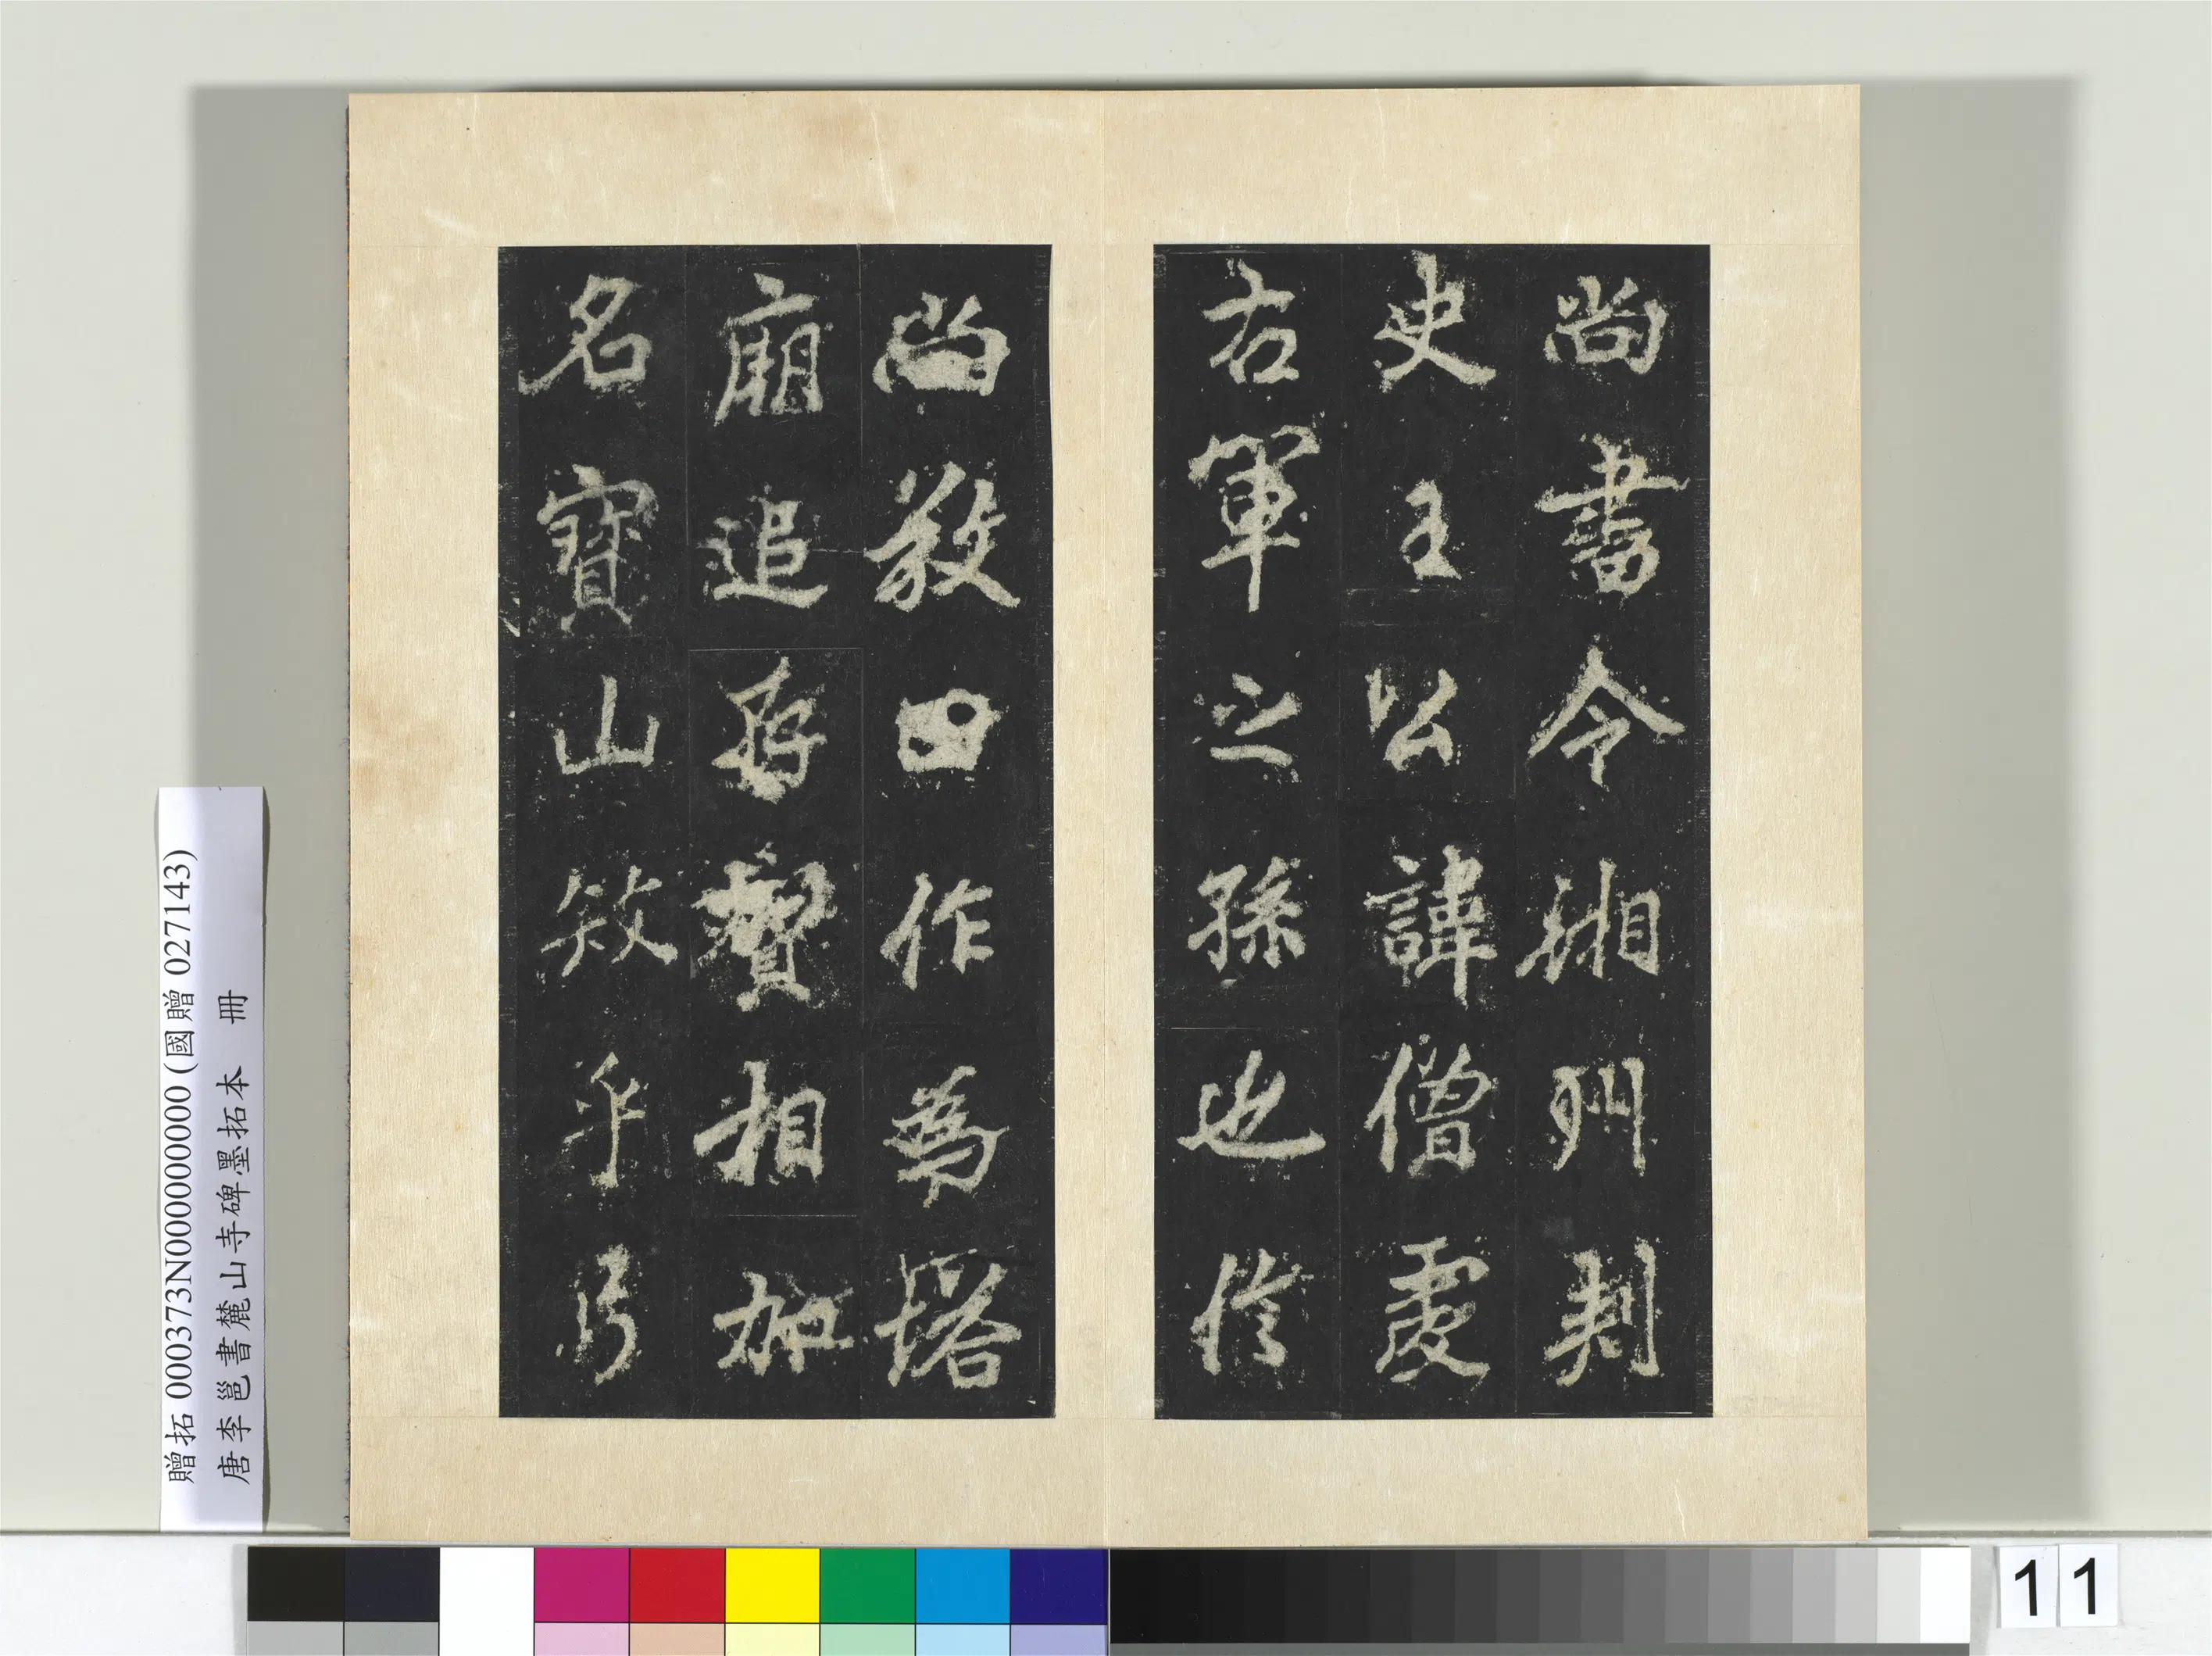 尚書令湘州刺
史王公諱僧虔
右軍之孫也信
尚敦曰作為塔
廟追存寶相加
名寶山欽乎弓
贈拓 000373N000000000 (國贈 027143)
唐李邕書麓山寺碑墨拓本 冊
11